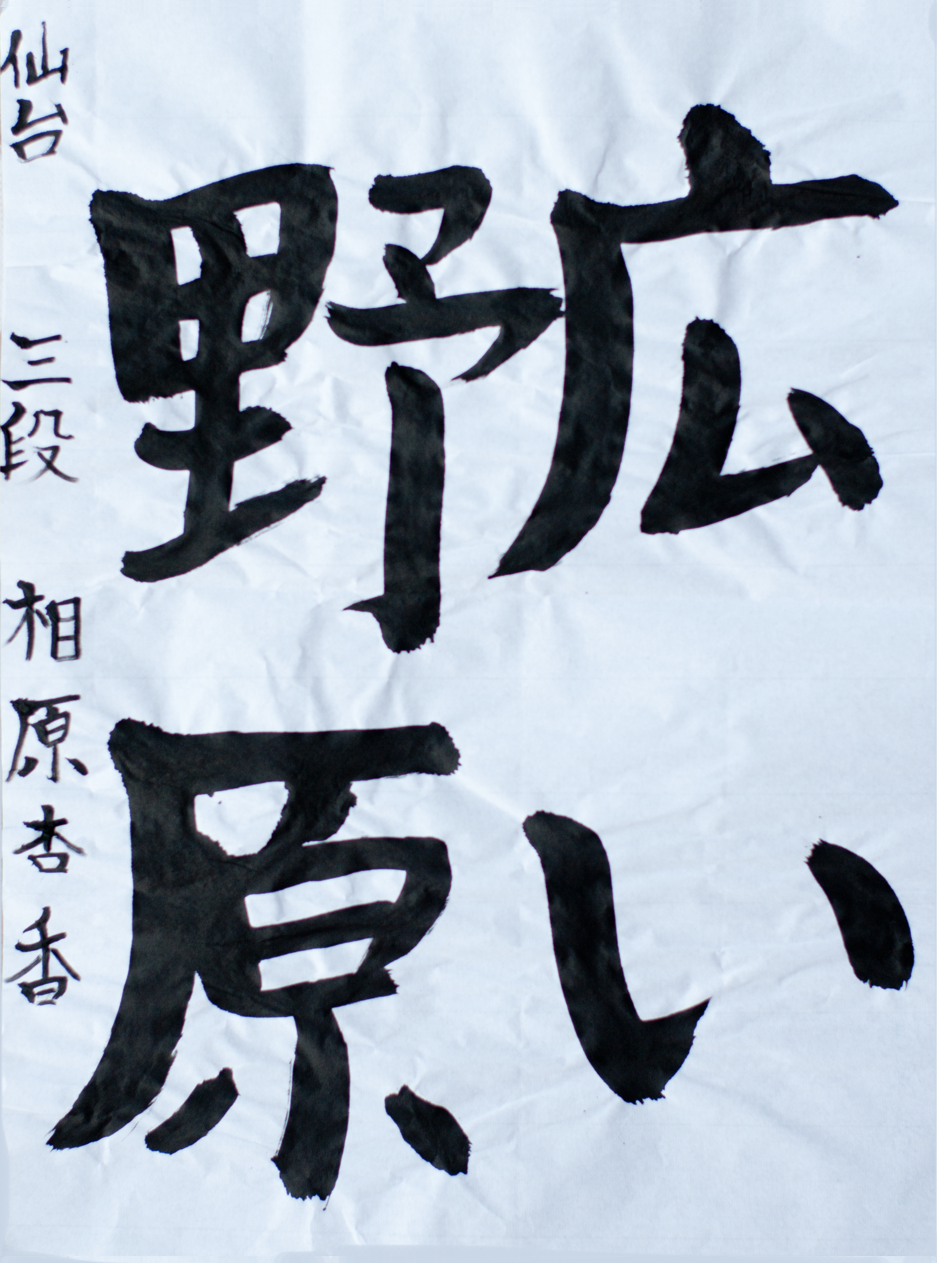 広い
野原
仙台 三段 相原杏香